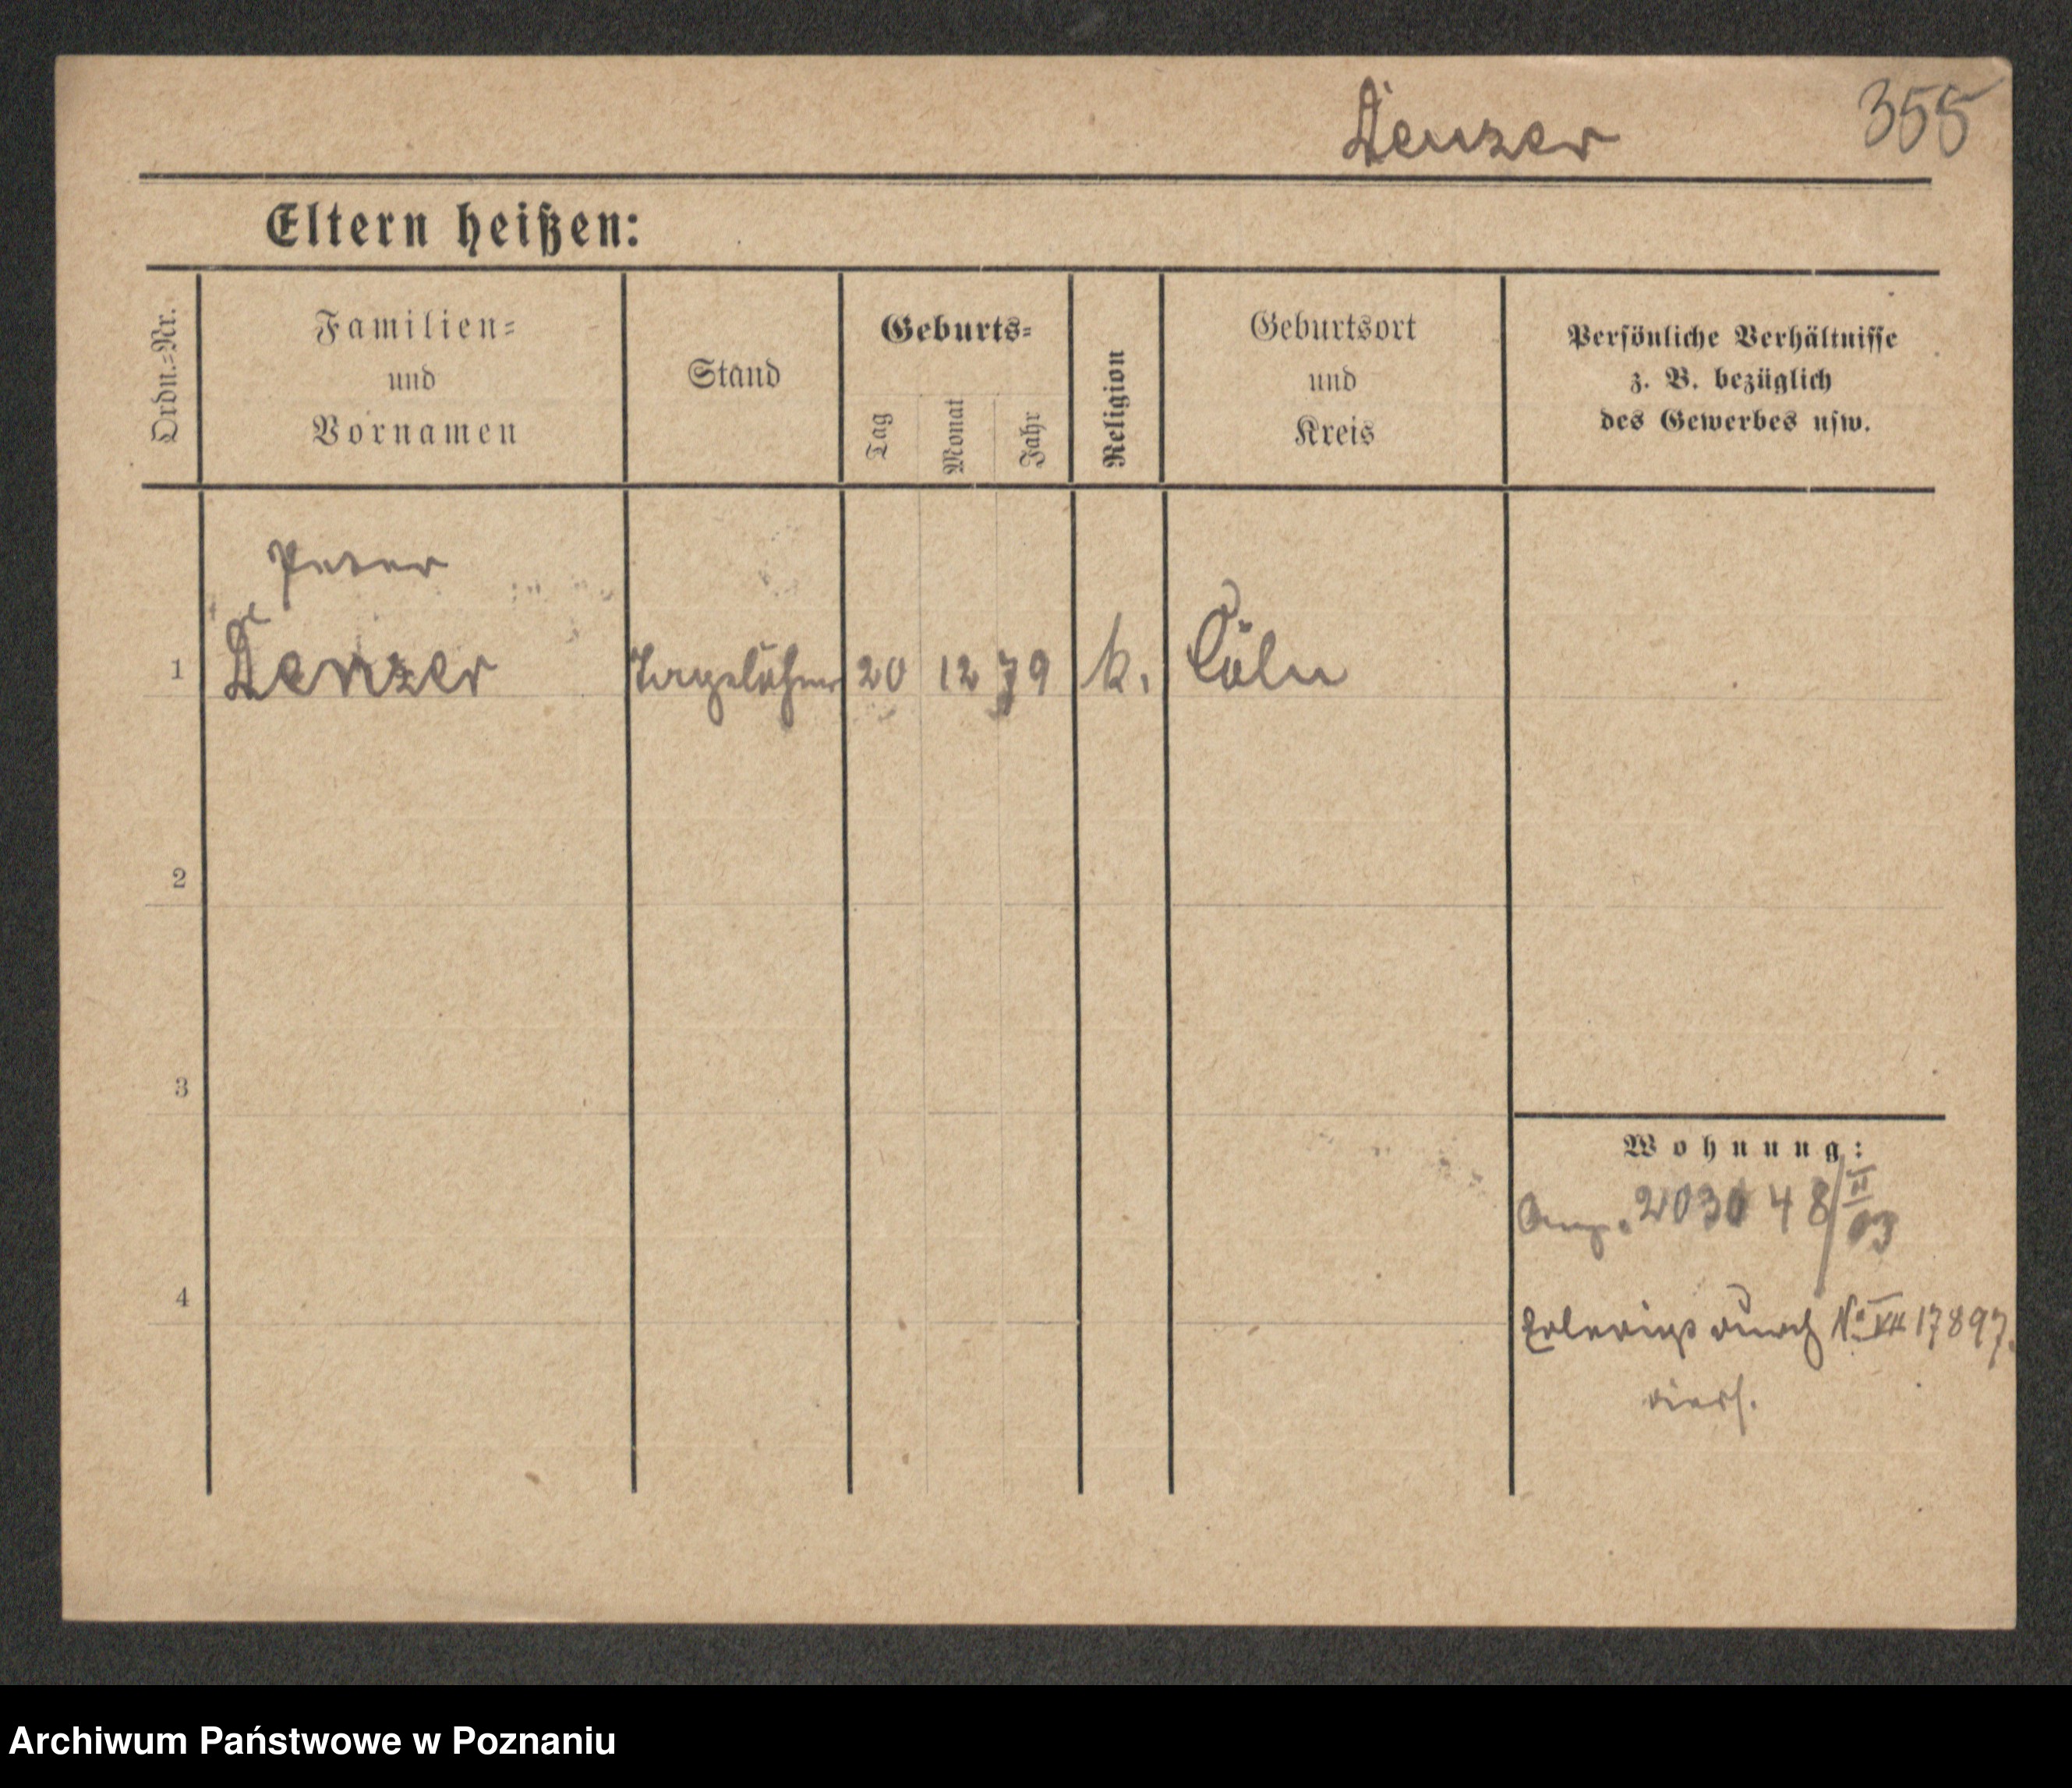 Denzer 355
Eltern heißen:
Ordn.=Nr.
Familien=
und
Vornamen
Stand
Geburts=
Tag
Monat
Jahr
Religion
Geburtsort
und
Kreis
Persönliche Verhältnisse
z. B. bezüglich
des Gewerbes usw.
Peter
1 Denzer Tagelöhner 20 12 79 k. Cöln
2
3
Wohnung:
2030 4 8/II 03
4
Erledigt durch No VII 17897.
Archiwum Państwowe w Poznaniu